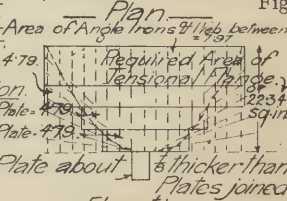 Plan. Fig
Area of Angle Irons & 1 Web between
7.97
4.79. Required Area of
Tensional Flange.
on.
Plate = 4.79 22.34
Plate = 4.79 sq. in
Plate about thicker than
Plates joined